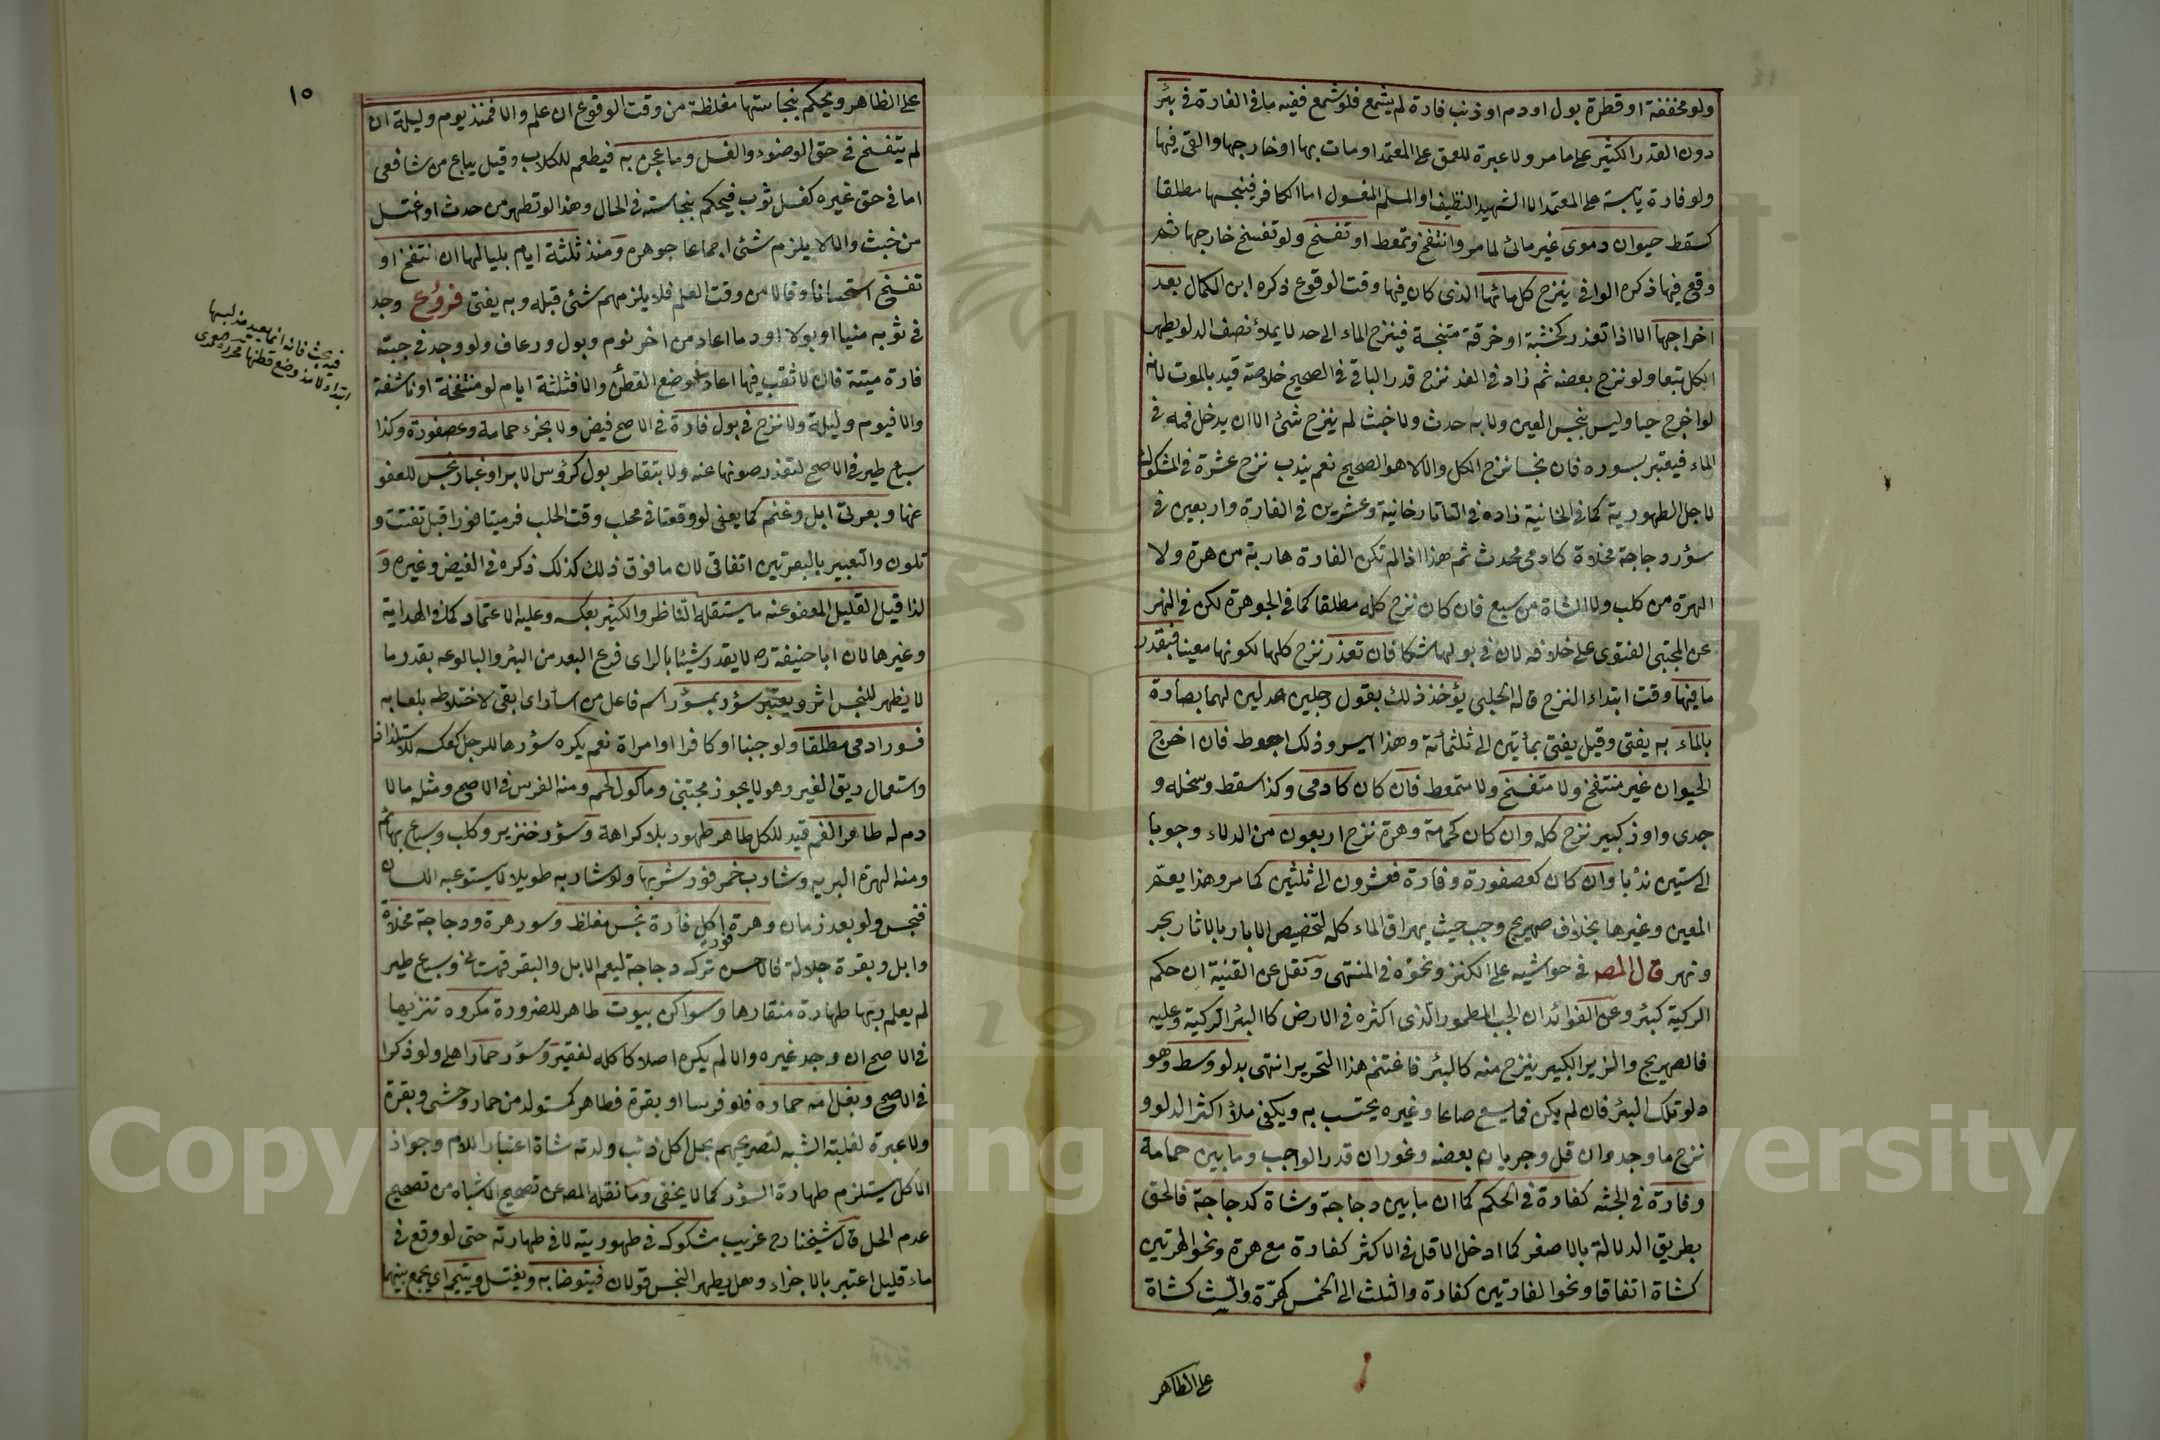 ولو مخففة او قطرة بول او دم او ذنب فارة لم يشمع فلو شمع ففيه ما في الفارة في بئر
دون القدر الكثير على ما مر ولا عبرة للعمق على المعتمد او مات بها او خارجها والقى فيها
ولو فارة يابسة على المعتمد الا الشهيد النظيف او المسلم المغسول اما الكافر فينجسها مطلقا
كسقط حيوان دموى غير مائى لما مر وانتفخ وتمعط او تفسخ ولو تفسخ خارجها ثم
وقع فيها ذكره الوافى ينزح كل مائها الذى كان فيها وقت الوقوع ذكره ابن الكمال بعد
اخراجها الا اذا تعذر كخشبة او خرقة متنجسة فينزح الماء الى حد لا يملأ نصف الدلو يطهر
الكل تبعا ولو نزح بعضه ثم زاد في الغد نزح قدر الباقى في الصحيح خلاصة قيد بالموت لانه
لو اخرج حيا وليس بنجس العين ولا به حدث ولا خبث لم ينزح شئ الا ان يدخل فمه في
الماء فيعتبر بسوره فان نجسا نزح الكل والا لا هو الصحيح نعم يندب نزح عشرة في المشكوك
لاجل الطهورية كما في الخانية زاده في التاتارخانية وعشرين في الفارة واربعين في
سؤر دجاجة مخلاة كادمى محدث ثم هذا اذا لم تكن الفارة هاربة من هرة ولا
الهرة من كلب ولا الشاة من سبع فان كان نزح كله مطلقا كما في الجوهرة لكن في النهر
عن المجتبى الفتوى على خلافه لان في بولها شكا فان تعذر نزح كلها لكونها معينا فبقدر
ما فيها وقت ابتداء النزح قاله الحلبى يؤخذ ذلك بقول رجلين عدلين لهما بصارة
بالماء به يفتى وقيل يفتى بمأتين الى ثلثمائة وهذا ايسر وذلك احوط فان اخرج
الحيوان غير منتفخ ولا متفسخ ولا متمعط فان كان كادمى وكذا سقط وسخله و
جدى واوز كبير نزح كله وان كان كحمامة وهرة نزح اربعون من الدلاء وجوبا
الى ستين ندبا وان كان كعصفورة وفارة فعشرون الى ثلثين كما مر وهذا يعم
المعين وغيرها بخلاف صهريج وجب حيث يهراق الماء كله لتخصيص الابار بالاثار بحر
ونهر قال المصه في حواشيه على الكنز ونحوه في المنتهى ونقل عن القنية ان حكم
الركية كبئر وعن الفوائد ان الجب المطمور الذى اكثره في الارض كالبئر الركية وعليه
فالصهريج والزير الكبير ينزح منه كالبئر فاغتنم هذا التحرير انتهى بدلو وسط وهو
دلو تلك البئر فان لم يكن فما يسع صاعا وغيره يحتسب به ويكفى ملأ اكثر الدلو و
نزح ما وجد وان قل وجريان بعضه وغوران قدر الواجب وما بين حمامة
وفارة في الجثه كفارة في الحكم كما ان ما بين دجاجة وشاة كدجاجة فالحق
بطريق الدلالة بالاصغر كما ادخل الاقل في الاكثر كفارة مع هرة ونحو الهرتين
كشاة اتفاقا ونحو الفارتين كفارة والثلث الى الخمس كهرة والست كشاة
على الظاهر
١٥
على الظاهر ويحكم بنجاستها مغلظة من وقت الوقوع ان علم والا فمنذ يوم وليلة ان
لم يتفسخ في حق الوضوء والغسل وما عجن به فيطعم للكلاب وقيل يباع من شافعى
اما في حق غيره كغسل ثوب فيحكم بنجاسته في الحال وهذا لو تطهر من حدث او اغتسل
من خبث والا لا يلزم شئ اجماعا جوهره ومنذ ثلثة ايام بلياليها ان انتفخ او
تفسخ استحسانا وقالا من وقت العلم فلا يلزمهم شئ قبله وبه يفتى فروع وجد
في ثوبه منيا او بولا او دما اعاد من اخر نوم وبول ورعاف ولو وجد في جبته
فارة ميتة فان لا ثقب فيها اعاد مذ وضع القطن والا فثلثة ايام لو منتفخة او ناشفة
والا فيوم وليلة ولا نزح في بول فارة في الاصح فيض ولا بخرء حمامة وعصفورة وكذا
سباع طير في الاصح لتعذر صونها عنه ولا بتقاطر بول كرؤس الابر او غبار نجس للعفو
عنها وبعرتى ابل وغنم كما يعفى لو وقعتا في محلب وقت الحلب فرميتا فورا قبل تفتت و
تلون والتعبير بالبعرتين اتفاقى لان ما فوق ذلك كذلك ذكره في الفيض وغيره و
لذا قيل القليل المعفو عنه ما يستقله الناظر والكثير بعكسه وعليه الاعتماد كما في الهداية
وغيرها لان ابا حنيفة ره لا يقدر شيئا بالراى فرع البعد من البئر والبالوعه بقدر ما
لا يظهر للنجس اثر ويعتبر سؤر بمسؤر اسم فاعل من اسأر اى ابقى لاختلاطه بلعابه
فسور ادمى مطلقا ولو جنبا او كافرا او امراة نعم يكره سؤرها للرجل كعكسه للاستلذاذ
واستعمال ريق الغير وهو لا يجوز مجتبى وماكول لحم ومنه الفرس في الاصح ومثله ما لا
دم له طاهر الفم قيد للكل طاهر طهور بلا كراهة وسؤر خنزير وكلب وسباع بهائم
ومنه الهرة البريه وشارب خمر فور شربها ولو شاربه طويلا لا يستوعبه اللسان
فنجس ولو بعد زمان وهرة فور اكل فارة نجس مغلظ وسور هرة ودجاجة مخلاة
وابل وبقرة جلالة فالاحسن ترك دجاجة ليعم الابل والبقر قهستانى وسباع طير
لم يعلم ربها طهارة منقارها وسواكن بيوت طاهر للضرورة مكروه تنزيها
في الاصح ان وجد غيره والا لم يكره اصلا كاكله لفقير وسؤر حمار اهلى ولو ذكرا
في الاصح وبغل امه حماره فلو فرسا او بقرة فطاهر كمتولد من حمار وحشى وبقرة
ولا عبرة لغلبة الشبه لتصريحهم بحل اكل ذئب ولدته شاة اعتبارا للام وجواز
الاكل يستلزم طهارة السؤر كما لا يخفى وما نقله المصه عن تصحيح الاشباه من تصحيح
عدم الحل قال شيخنا رح غريب مشكوك في طهوريته لا في طهارته حتى لو وقع في
ماء قليل اعتبر بالاجزاء وهل يطهر النجس قولان فيتوضا به ويغتسل ويتيمم اى يجمع بينهما
فيه بحث فانه انما يعيد مذ لبسها
ابتداء لا مذ وضع قطنها
Copyright © King Saud University